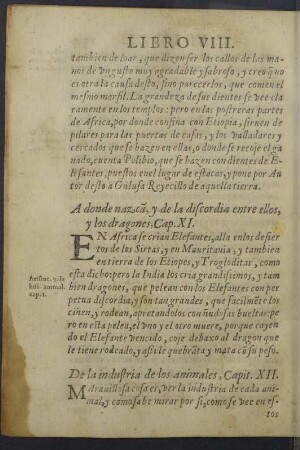 LIBRO VIII.
tambien de loar, que dizen ser los callos de las ma-
nos de vn gusto muy agradable y sabroso, y creo q̃ no
es otra la causa desto, sino parecerles, que comen el
mesmo marfil. La grandeza de sus dientes se vee cla
ramente en los templos: pero en las postreras partes
de Africa, por donde confina con Etiopia, siruen de
pilares para las puertas de casas, y los valladares y
cercados que se hazen en ellas, o donde se recoje el ga
nado, cuenta Polibio, que se hazen con dientes de E-
lefantes, puestos en el lugar de estacas, y pone por Au
tor desto a Gulusa Reyecillo de aquella tierra.
A donde nazcã, y de la discordia entre ellos,
y los dragones, Cap. XI.
EN Africa se crian Elefantes, alla en los desier
tos de las Sirtas, y en Mauritania, y tambien
en tierra de los Etiopes, y Trogloditas, como
esta dicho: pero la India los cria grandisimos, y tam
bien dragones, que pelean con los Elefantes con per
petua discordia, y son tan grandes, que facilmẽte los
ciñen, y rodean, apretandolos con ñudosas bueltas: pe
ro en esta pelea, el vno y el otro muere, porque cayen
do el Elefante vencido, coje debaxo al dragon que
le tiene rodeado, y assi le quebrãta y mata cõ su peso.
hist. animal.
cap. 1.
De la industria de los animales, Capit. XII.
Marauillosa cosa es, ver la industria de cada ani-
mal, y como sabe mirar por si, como se vee en es-
tos